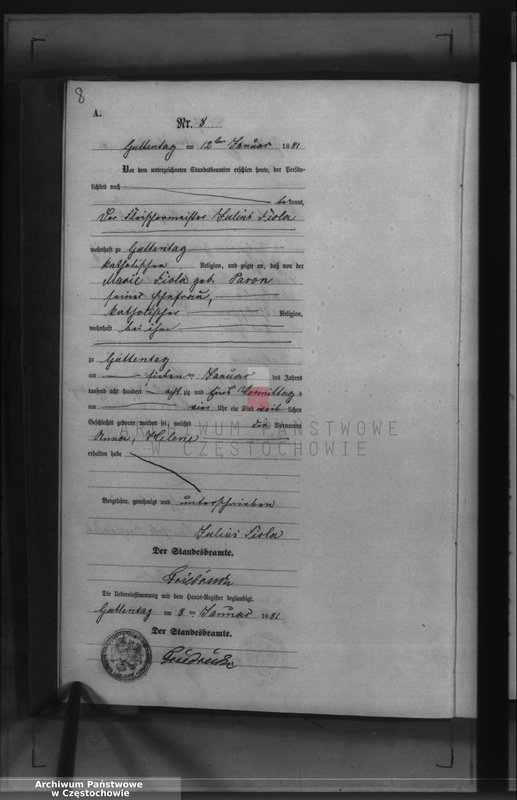 8
A.
Nr. 8
Guttentag am 12ten Januar 1881
Vor dem unterzeichneten Standesbeamten erschien heute, der Persön-
lichkeit nach
bekannt,
Der Fleischermeister Julius Fiola
wohnhaft zu Guttentag
katholischen Religion, und zeigte an, daß von der
Marie Fiola geb. Paron
seiner Ehefrau,
katholischer Religion,
wohnhaft bei ihm
zu Guttentag
am Januar des Jahres
tausend acht hundert achtzig und Eins Vormittag s
um vier Uhr ein Kind weiblichen
Geschlechts geboren worden sei, welches die Vornamen
Helene
erhalten habe
Vorgelesen, genehmigt und unterschrieben
Julius Fiola
Der Standesbeamte.
Die Uebereinstimmung mit dem Haupt-Register beglaubigt.
Guttentag am 8ten Januar 1881
Der Standesbeamte.
ARCHIWUM PAŃSTWOWE
W CZĘSTOCHOWIE
Archiwum Państwowe
w Częstochowie